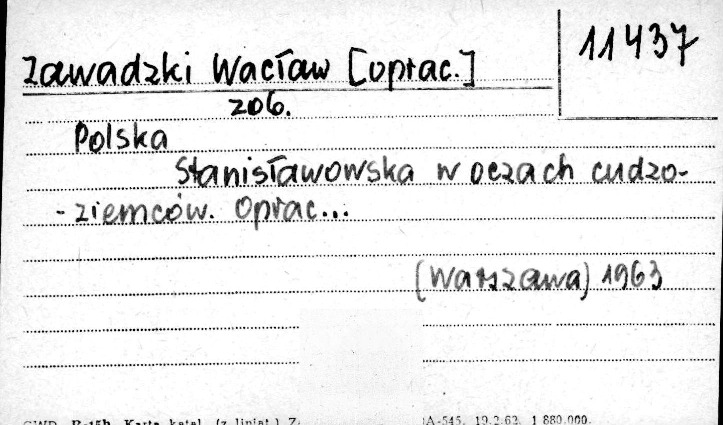 11437
Zawadzki Wacław [oprac.]
zob.
Polska
Stanisławowska w oczach cudzo-
-ziemców. Oprac...
(Warszawa) 1963
GWD. R-15b. Karta katal. (z liniat.) Z. A-545. 19.2.62. 1 880.000.